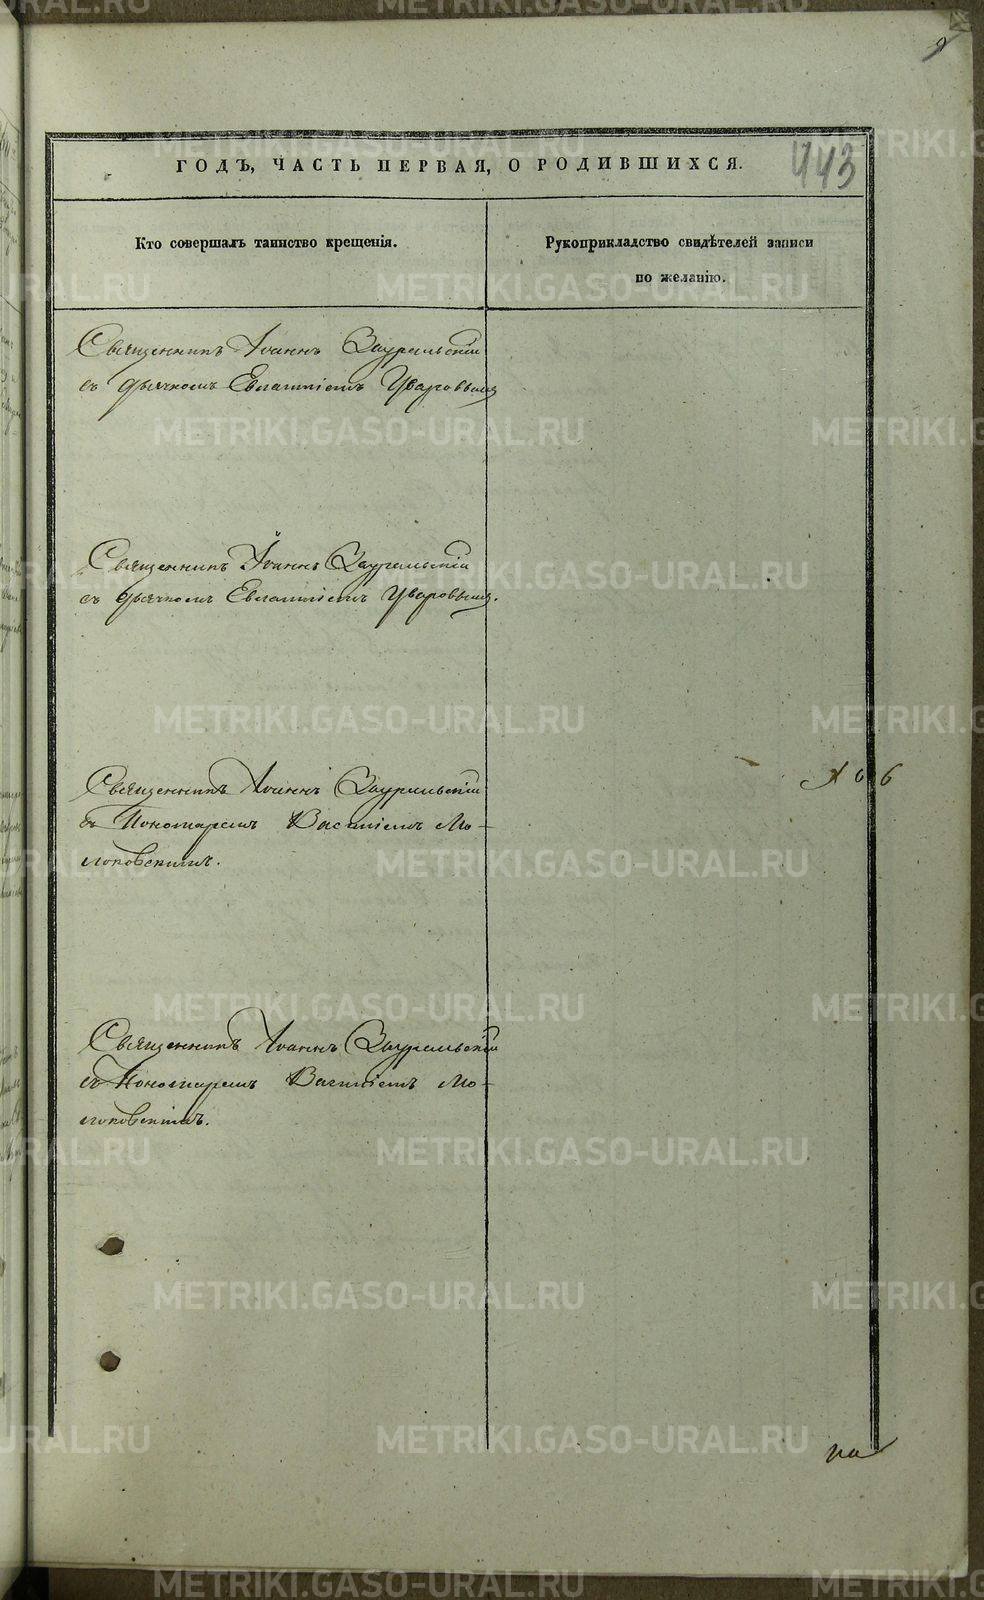 9
443
ГОДЪ, ЧАСТЬ ПЕРВАЯ, О РОДИВШИХСЯ.
Кто совершалъ таинство крещенія.
Рукоприкладство свидѣтелей записи
по желанію.
Священникъ Іоаннъ Зауральскій
съ дьячкомъ Евлампіемъ Уваровымъ
Священникъ Іоаннъ Зауральскій
съ дьячкомъ Евлампіемъ Уваровымъ.
Священникъ Іоаннъ Зауральскій
съ Пономаремъ Василіемъ Мо-
локовскимъ.
Священникъ Іоаннъ Зауральскій
съ Пономаремъ Василіемъ Мо-
локовскимъ.
на
METRIKI.GASO-URAL.RU